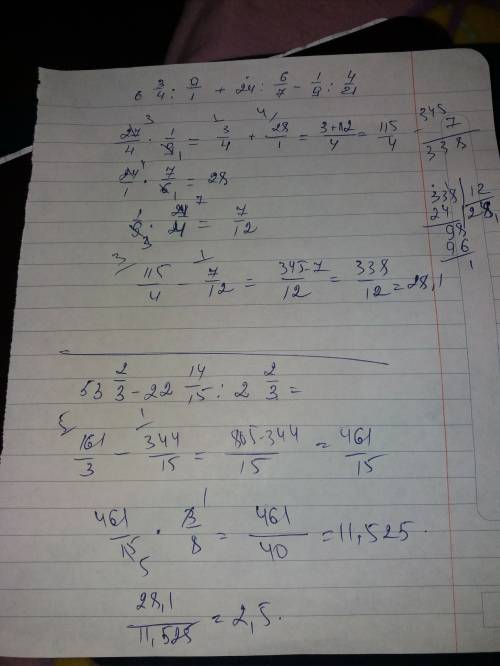 6 3/4 : 9/1 + 24 : 6/7 - 1/9 : 4/21
27/4 · 1/9 = 3/4 + 28/1 = 3+112/4 = 115/4
24/1 · 7/6 = 28
1/9 · 21/4 = 7/12
115/4 - 7/12 = 345-7/12 = 338/12 = 28,1
345
7
338
338 | 12
24 | 28,1
98
96
1
53 2/3 - 22 14/15 : 2 2/3 =
161/3 - 344/15 = 805-344/15 = 461/15
461/15 · 3/8 = 461/40 = 11,525.
28,1/11,525 = 2,5.